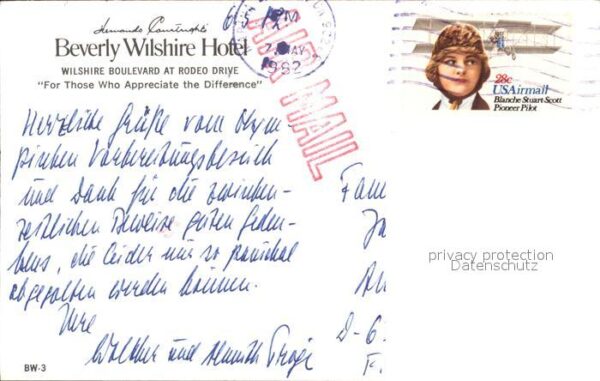 Hernando Courtright's
Beverly Wilshire Hotel
WILSHIRE BOULEVARD AT RODEO DRIVE
"For Those Who Appreciate the Difference"
PM
MAY
1982
AIR MAIL
28c
USAirmail
Blanche Stuart Scott
Pioneer Pilot
Herzliche Grüße vom Olym-
pischen Vorbereitungsbesuch
und Dank für die zwischen-
zeitlichen Beweise guten Geden-
kens, die leider nur so pauschal
abgegolten werden können.
Ihre
Walther und
Fam
An
D-6
F.
privacy protection
Datenschutz
BW-3